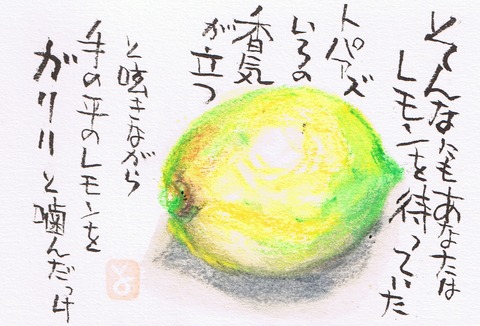 そんなにもあなたは
レモンを待っていた
トパアズ
いろの
香気
が立つ
と呟きながら
手の平のレモンを
ガリリと噛んだっけ